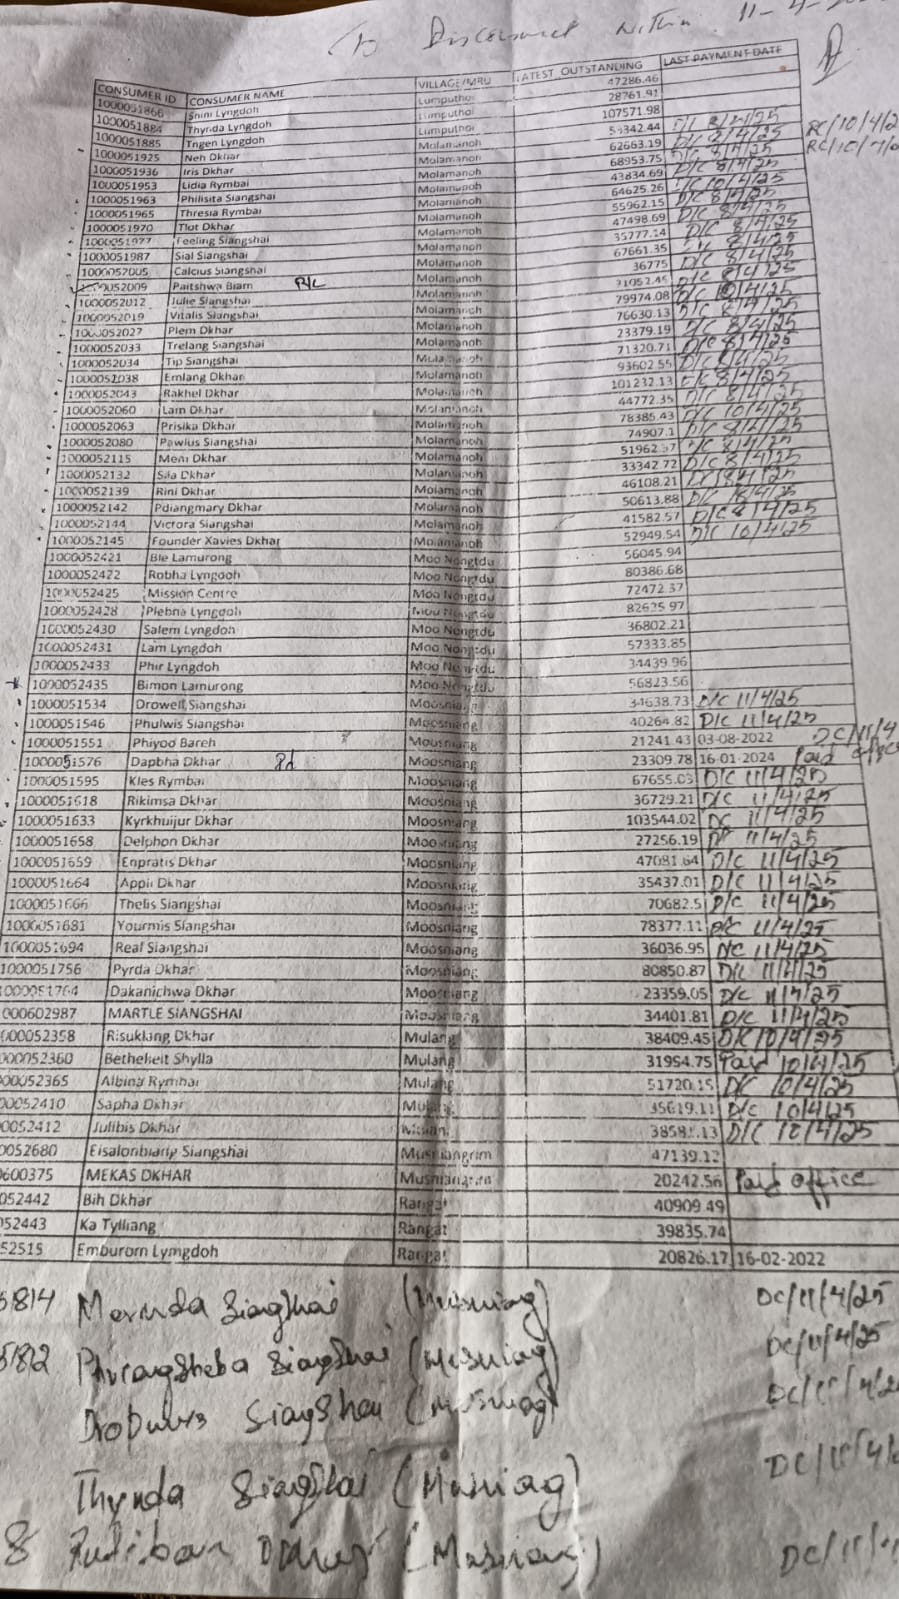 To Disconnect within 11-4-
CONSUMER ID CONSUMER NAME VILLAGE/MRU LATEST_OUTSTANDING LAST PAYMENT DATE
1000051866 Shim Lyngdoh Lumputhoi 47286.46
1000051884 Thyrda Lyngdoh Lumputhoi 28761.91
1000051885 Tngen Lyngdoh Lumputhoi 107571.98
1000051925 Neh Dkhar Molamanoh 53342.44 8/4/25
1000051936 Iris Dkhar Molamanoh 62663.19 D/C 8/4/25 RC/10/4/2
1000051953 Lidia Rymbai Molamanoh 68953.75 8/4/25 RC/10/
1000051963 Philisita Siangshai Molamanoh 43834.69 D/C 8/4/25
1000051965 Thresia Rymbai Molamanoh 64625.26 D/C 10/4/25
1000051970 Tlot Dkhar Molamanoh 55962.15 D/C 8/4/25
1000051977 Feeling Siangshai Molamanoh 47498.69 D/C 8/4/25
1000051987 Sial Siangshai Molamanoh 35777.14 D/C 8/4/25
1000052005 Calcius Siangshai Molamanoh 67661.35 8/4/25
052009 Paitshwa Biam R/C Molamanoh 36775 D/C 8/4/25
1000052012 Julie Siangshai Molamanoh 8/4/25
1000052019 Vitalis Siangshai Molamanoh 79974.08 D/C 10/4/25
1000052027 Plem Dkhar Molamanoh 76630.13 D/C 8/4/25
1000052033 Trelang Siangshai Molamanoh 23379.19 D/C 8/4/25
1000052034 Tip Siangshai Molamanoh 71320.71 D/C 8/4/25
1000052038 Emlang Dkhar Molamanoh 93602.55 D/C 8/4/25
1000052043 Rakhel Dkhar Molamanoh 101232.13 D/C 8/4/25
1000052060 Lam Dkhar Molamanoh 44772.35 D/C 8/4/25
1000052063 Prisika Dkhar Molamanoh 78385.43 D/C 10/4/25
1000052080 Pawlus Siangshai Molamanoh 74907.1 D/C 8/4/25
1000052115 Meni Dkhar Molamanoh 51962.37 D/C 8/4/25
1000052132 Sila Dkhar Molamanoh 33342.72 D/C 8/4/25
1000052139 Rini Dkhar Molamanoh 46108.21 D/C 8/4/25
1000052142 Pdiangmary Dkhar Molamanoh 50613.88 D/C 10/4/25
1000052144 Victora Siangshai Molamanoh 41582.57 D/C 8/4/25
1000052145 Founder Xavies Dkhar Molamanoh 52949.54 D/C 10/4/25
1000052421 Ble Lamurong Moo Nongtdu 56045.94
1000052422 Robha Lyngdoh Moo Nongtdu 80386.68
1000052425 Mission Centre Moo Nongtdu 72472.37
1000052428 Plebna Lyngdoh Moo Nongtdu 82625.97
1000052430 Salem Lyngdoh Moo Nongtdu 36802.21
1000052431 Lam Lyngdoh Moo Nongtdu 57333.85
1000052433 Phir Lyngdoh Moo Nongtdu 34439.96
1000052435 Bimon Lamurong Moo Nongtdu 56823.56
1000051534 Drowell Siangshai Moosniang 34638.73 D/C 11/4/25
1000051546 Phulwis Siangshai Moosniang 40264.82 D/C 11/4/25
1000051551 Phiyoo Bareh Moosniang 21241.43 03-08-2022 DC/11/4
1000051576 Dapbha Dkhar Pd Moosniang 23309.78 16-01-2024 Paid office
1000051595 Kles Rymbai Moosniang 67655.03 D/C 11/4/25
1000051618 Rikimsa Dkhar Moosniang 36729.21 D/C 11/4/25
1000051633 Kyrkhuijur Dkhar Moosniang 103544.02 DC 11/4/25
1000051658 Delphon Dkhar Moosniang 27256.19 11/4/25
1000051659 Enpratis Dkhar Moosniang 47081.64 D/C 11/4/25
1000051664 Appii Dkhar Moosniang 35437.01 D/C 11/4/25
1000051666 Thelis Siangshai Moosniang 70682.5 D/C 11/4/25
1000051681 Yourmis Siangshai Moosniang 78377.11 D/C 11/4/25
1000051694 Real Siangshai Moosniang 36036.95 D/C 11/4/25
1000051756 Pyrda Dkhar Moosniang 80850.87 D/C 11/4/25
1000051764 Dakanichwa Dkhar Moosniang 23359.05 D/C 11/4/25
000602987 MARTLE SIANGSHAI Moosniang 34401.81 D/C 11/4/25
000052358 Risuklang Dkhar Mulang 38409.45 D/C 10/4/25
000052360 Betheleit Shylla Mulang 31954.75 Paid 10/4/25
00052365 Albina Rymbai Mulang 51720.15 D/C 10/4/25
00052410 Sapha Dkhar Mulang 35619.11 D/C 10/4/25
0052412 Julibis Dkhar Mulang D/C 10/4/25
0052680 Eisalonbiang Siangshai Musniangrim 47139.12
0600375 MEKAS DKHAR Musniangrim 20242.56 Paid office
052442 Bih Dkhar Rangat 40909.49
052443 Ka Tylliang Rangat 39835.74
52515 Emburom Lymgdoh Rangat 20826.17 16-02-2022
5814 Marinda Siangshai (Musniang) DC/11/4/25
5182 Phirangsheba Siangshai (Musniang) DC/11/4/25
Siangshai (Musniang) DC/11/4/2
Thynda Siangshai (Musniang) DC/11/4/
8 (Musniang) DC/11/